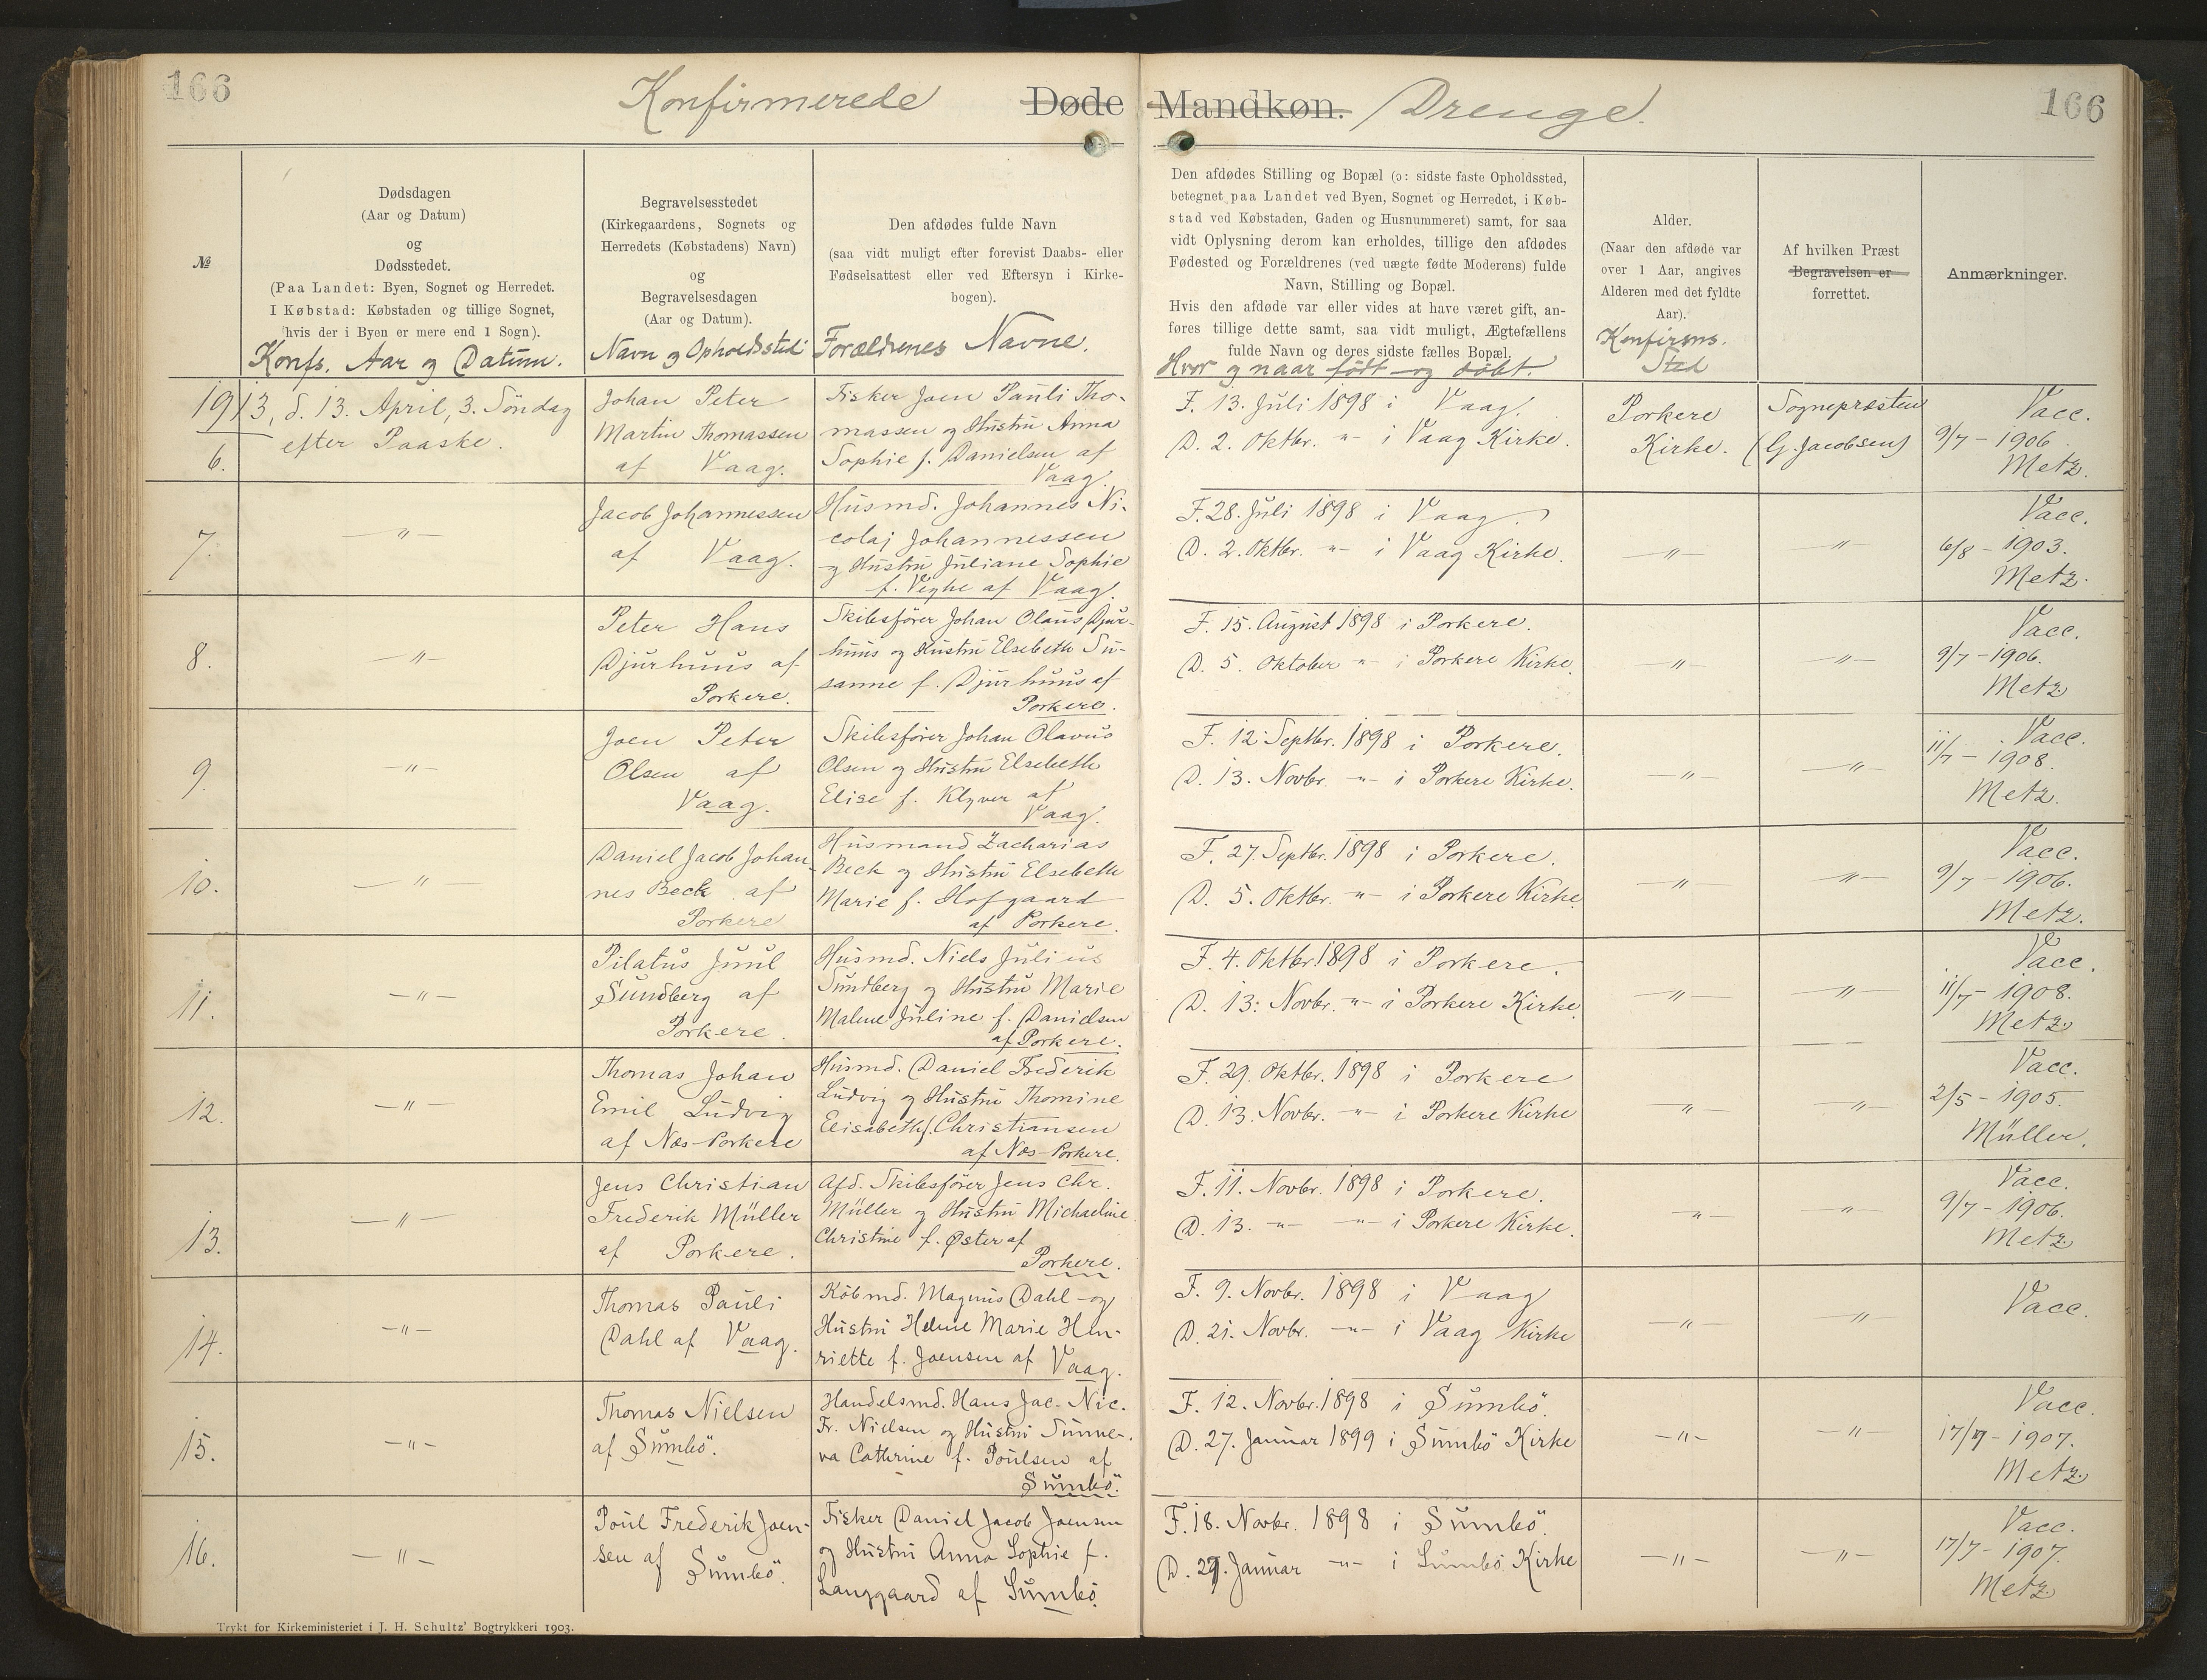 166
Konfirmerede Døde Mandkøn. Drenge.
166
№
Dødsdagen
(Aar og Datum)
og
Dødsstedet.
(Paa Landet: Byen, Sognet og Herredet.
I Købstad: Købstaden og tillige Sognet,
hvis der i Byen er mere end 1 Sogn).
Konfs. Aar og Datum.
Begravelsesstedet
(Kirkegaardens, Sognets og
Herredets (Købstadens) Navn)
og
Begravelsesdagen
(Aar og Datum).
Navn og Opholdssted
Den afdødes fulde Navn
(saa vidt muligt efter forevist Daabs- eller
Fødselsattest eller ved Eftersyn i Kirke-
bogen).
Forældrenes Navne.
Den afdødes Stilling og Bopæl (ɔ: sidste faste Opholdssted,
betegnet paa Landet ved Byen, Sognet og Herredet, i Køb-
stad ved Købstaden, Gaden og Husnummeret) samt, for saa
vidt Oplysning derom kan erholdes, tillige den afdødes
Fødested og Forældrenes (ved uægte fødte Moderens) fulde
Navn, Stilling og Bopæl.
Hvis den afdøde var eller vides at have været gift, an-
føres tillige dette samt, saa vidt muligt, Ægtefællens
fulde Navn og deres sidste fælles Bopæl.
Hvor og naar født og döbt.
Alder.
(Naar den afdøde var
over 1 Aar, angives
Alderen med det fyldte
Aar).
Konfirms.
Sted
Af hvilken Præst
Begravelsen er
forrettet.
Anmærkninger.
1913, d. 13. April, 3. Söndag
efter Paaske.
6.
Johan Peter
Martin Thomassen
af Vaag.
Fisker Joen Pauli Tho-
massen og Hustru Anna
Sophie f. Danielsen af
Vaag.
F. 13. Juli 1898 i Vaag.
D. 2. Oktbr. -"- i Vaag Kirke.
Porkere
Kirke.
Sognepræsten
(G. Jacobsen)
Vacc.
9/7 - 1906
Metz.
7.
-"-
Jacob Johannessen
af Vaag.
Husmd. Johannes Ni-
colaj Johannessen
og Hustru Juliane Sophie
f. Veyhe af Vaag.
F. 28. Juli 1898 i Vaag.
D. 2. Oktbr. -"- i Vaag Kirke.
-"-
-"-
Vacc.
6/8 - 1903.
Metz.
8.
-"-
Peter Hans
Djurhuus af
Porkere.
Skibsfører Johan Olaus Djur-
huus og Hustru Elsebeth Su-
sanne f. Djurhuus af
Porkere.
F. 15. August 1898 i Porkere.
D. 5. Oktober -"- i Porkere Kirke.
-"-
-"-
Vacc.
9/7 - 1906.
Metz
9.
-"-
Joen Peter
Olsen af
Vaag.
Skibsfører Johan Olavus
Olsen og Hustru Elsebeth
Elise f. Klyver af
Vaag.
F. 12. Septbr. 1898 i Porkere.
D. 13. Novbr. -"- i Porkere Kirke.
-"-
-"-
Vacc.
11/7 - 1908.
Metz.
10.
-"-
Daniel Jacob Johan-
nes Beck af
Porkere
Husmand Zacharias
Beck og Hustru Elsebeth
Marie f. Hofgaard
af Porkere.
F. 27. Septbr. 1898 i Porkere.
D. 5. Oktbr. -"- i Porkere Kirke.
-"-
-"-
Vacc.
9/7 - 1906.
Metz.
11.
-"-
Pilatus Juul
Sundberg af
Porkere.
Husmd. Niels Julius
Sundberg og Hustru Marie
Malene Juline f. Danielsen
af Porkere.
F. 4. Oktbr. 1898 i Porkere.
D. 13. Novbr. -"- i Porkere Kirke.
-"-
-"-
Vacc.
11/7 - 1908.
Metz
12.
-"-
Thomas Johan
Emil Ludvig
af Næs-Porkere
Husmd. Daniel Frederik
Ludvig og Hustru Thomine
Elisabeth f. Christiansen
af Næs-Porkere.
F. 29. Oktbr. 1898 i Porkere
D. 13. Novbr. -"- i Porkere Kirke
-"-
-"-
Vacc.
2/5 - 1905.
Müller.
13.
-"-
Jens Christian
Frederik Müller
af Porkere.
Afd. Skibsfører Jens Chr.
Müller og Hustru Michaeline
Christine f. Øster af
Porkere.
F. 11. Novbr. 1898 i Porkere.
D. 13. -"- -"- i Porkere Kirke.
-"-
-"-
Vacc.
9/7 - 1906.
Metz
14.
-"-
Thomas Pauli
Dahl af Vaag.
Købmd. Magnus Dahl og
Hustru Helene Marie Hen-
riette f. Joensen af Vaag.
F. 9. Novbr. 1898 i Vaag
D. 21. Novbr. -"- i Vaag Kirke
-"-
-"-
Vacc.
15.
-"-
Thomas Nielsen
af Sumbö.
Handelsmd. Hans Jac. Nic.
Fr. Nielsen og Hustru Sunne-
va Cathrine f. Poulsen af
Sumbö.
F. 12. Novbr. 1898 i Sumbö.
D. 27. Januar 1899 i Sumbö Kirke
-"-
-"-
Vacc.
17/7 - 1907.
Metz
16.
-"-
Poul Frederik Joen-
sen af Sumbö.
Fisker Daniel Jacob Joensen
og Hustru Anna Sophie f.
Langgaard af Sumbö.
F. 18. Novbr. 1898 i Sumbö.
D. 27. Januar -"- i Sumbö Kirke
-"-
-"-
Vacc.
17/7 - 1907.
Metz
Trykt for Kirkeministeriet i J. H. Schultz' Bogtrykkeri 1903.